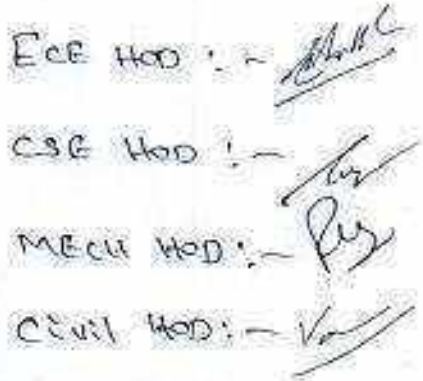 ECE HOD :-
CSE HOD :-
MECH HOD :-
Civil HOD :-